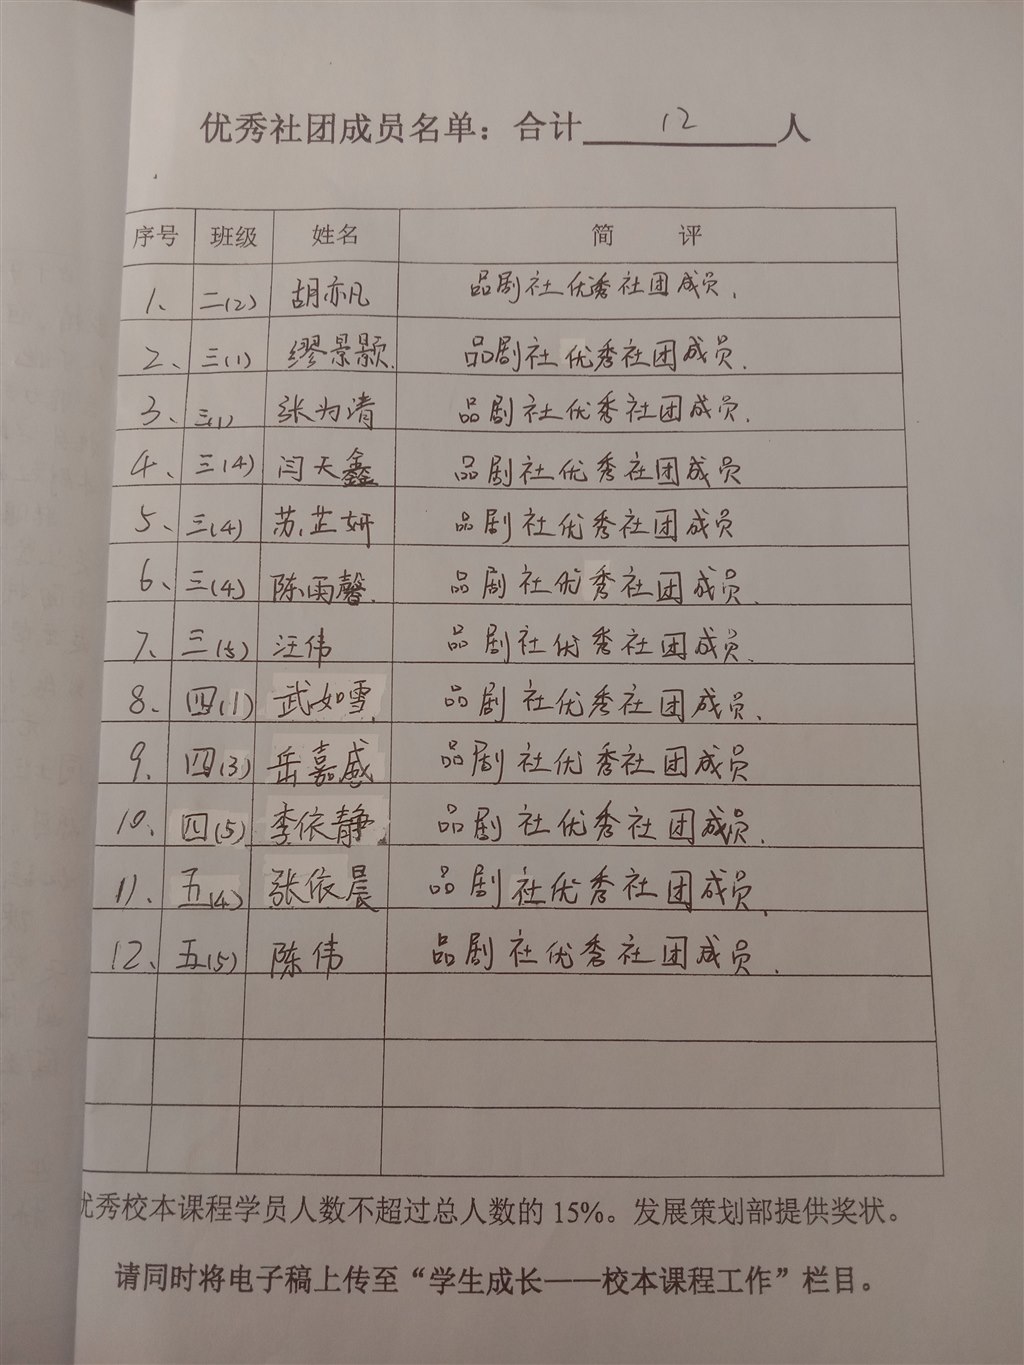 优秀社团成员名单：合计 12 人
序号 班级 姓名 简 评
1、 二(2) 胡亦凡 品剧社优秀社团成员.
2、 三(1) 缪景颢. 品剧社优秀社团成员.
3、 三(1) 张为清 品剧社优秀社团成员.
4、 三(4) 闫天鑫 品剧社优秀社团成员
5、 三(4) 苏芷妍 品剧社优秀社团成员
6、 三(4) 陈雨馨. 品剧社优秀社团成员.
7、 三(5) 汪伟 品剧社优秀社团成员.
8、 四(1) 武如雪. 品剧社优秀社团成员.
9、 四(3) 岳嘉威 品剧社优秀社团成员
10、 四(5) 李依静. 品剧社优秀社团成员.
11、 五(4) 张依晨 品剧社优秀社团成员.
12、 五(5) 陈伟 品剧社优秀社团成员.
优秀校本课程学员人数不超过总人数的 15%。发展策划部提供奖状。
请同时将电子稿上传至“学生成长——校本课程工作”栏目。